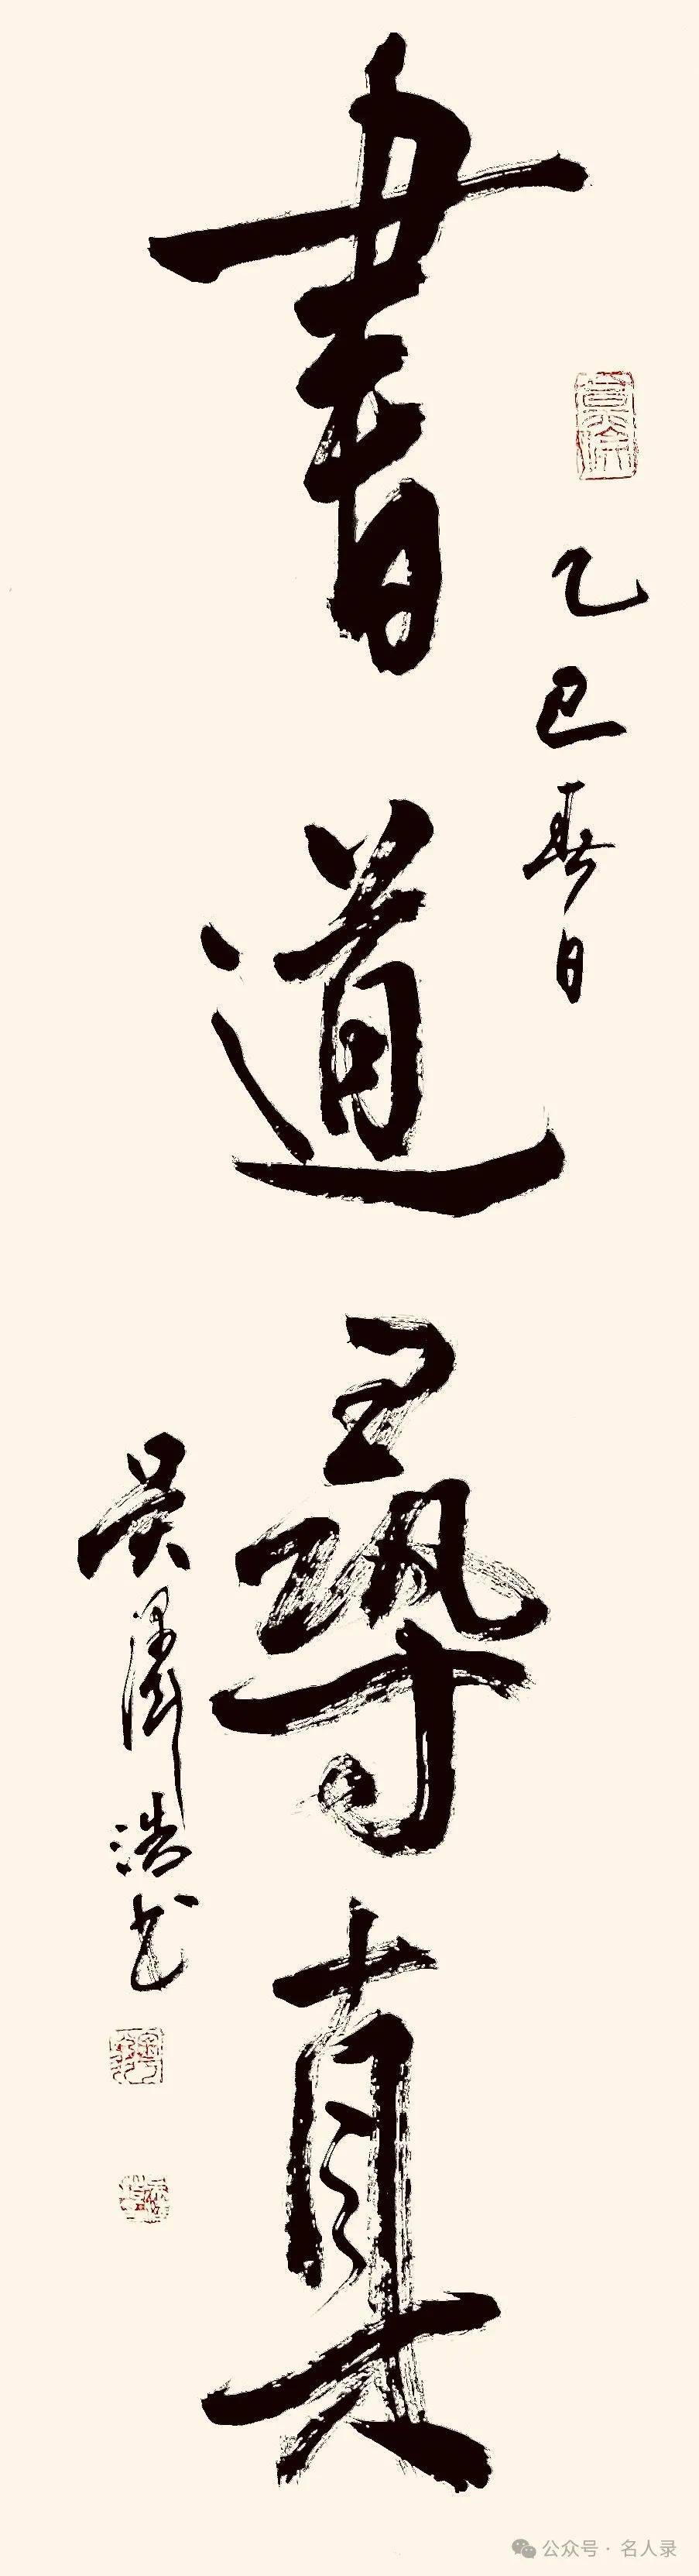 乙巳春日
書道尋真
吴澤浩书
公众号·名人录